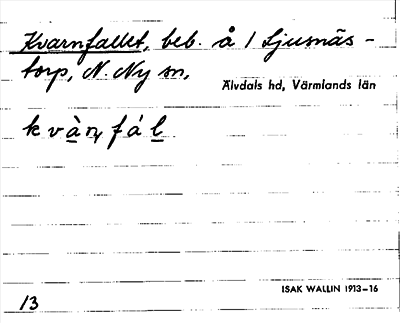 Kvarnfallet, beb. å 1 Ljusnäs-
torp, N. Ny sn,
Älvdals hd, Värmlands län
kvàn, fál
ISAK WALLIN 1913-16
13